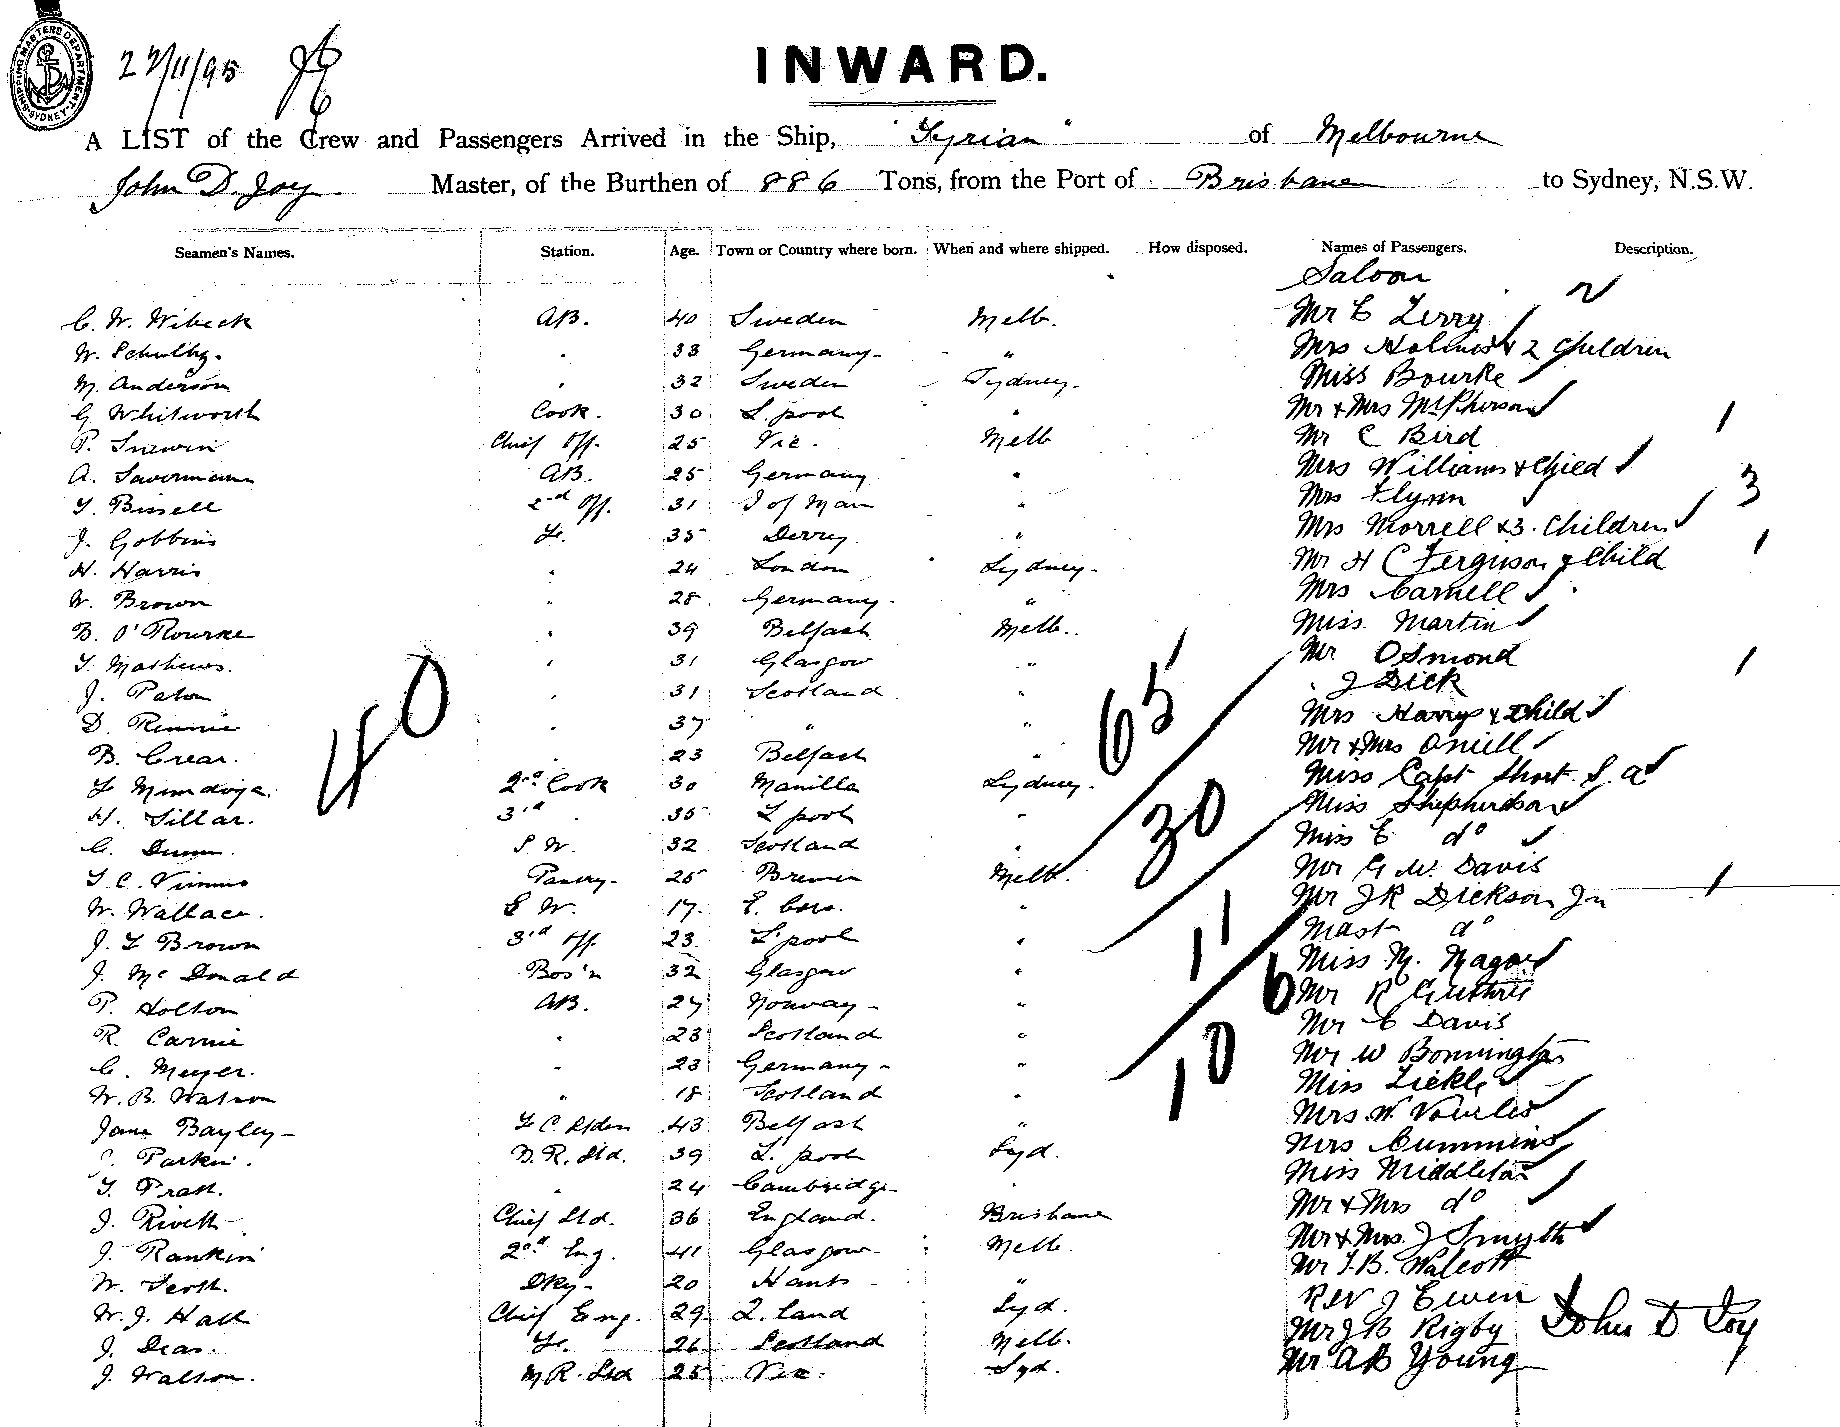 SHIPPING MASTERS DEPARTMENT SYDNEY
27/11/95
INWARD.
A LIST of the Crew and Passengers Arrived in the Ship, "Tyrian" of Melbourne
John D. Joy Master, of the Burthen of 886 Tons, from the Port of Brisbane to Sydney, N.S.W.
Seamen's Names. Station. Age. Town or Country where born. When and where shipped. How disposed. Names of Passengers. Description.
Saloon
C. W. Wibeck AB. 40 Sweden Melb. Mr C Terry
W. 33 Germany " Mrs Holmes & 2 Children
M. Anderson 32 Sweden Sydney. Miss Bourke
G Whitworth Cook. 30 L. pool " Mr & Mrs McPherson
P. Chief Off. 25 Vic. Melb Mr C Bird 1
A. AB. 25 Germany " Mrs Williams & Child
T. Bissell 2nd Off. 31 I of Man " Mrs Flynn 3
J. Gobbins 35 Derry " Mrs Morrell & 3. Children
H. Harris 24 London Sydney. Mr H C Ferguson & Child 1
W. Brown 28 Germany. " Mrs Carnell
B. O'Rourke 39 Belfast Melb. Miss Martin
T. Mathews. 31 Glasgow " Mr Osmond 1
J. Paton 31 Scotland " J Dick
D. Rennie 37 " " Mrs Harry & Child
B. Crear. 23 Belfast " Mr & Mrs Oniell
40 65
2nd Cook 30 Manilla Sydney. Miss Capt Short. S. A
H. Sillar. 3rd 35 L pool " Miss Shepherdson
C. Dunn. S. W. 32 Scotland " Miss E do
30
T. C. Pantry. 25 Bremen Melb. Mr G. W. Davis
W. Wallace. S W. 17. E. " Mr J R Dickson Jn 1
J. T Brown 3rd Off. 23 L'pool " Mast do
J. McDonald Bos'n 32 Glasgow " Miss M.
11
P. Holton AB. 27 Norway - " 6 Mr R Guthrie
R. Carnie 23 Scotland " Mr C Davis
C. Meyer. 23 Germany - " Mr W Bonnington
10
W. B. Watson 18 Scotland " Miss Tickle
Jane Bayley - 43 Belfast " Mrs W. Vowles
Parkin. B. R. Std. 39 L. pool Syd. Mrs Cummins
T. Pratt. " 24 Cambridge " Miss Middleton
J. Rivett Chief Std. 36 England. Brisbane Mr & Mrs do
J. Rankin 2nd Eng. 41 Glasgow Melb. Mr & Mrs. J Smyth
W. Scott. Dky - 20 Hants " Mr T. B. Walcott
W. J. Hall Chief Eng. 29 Q. land Syd. Rev J Ewen
J. Dear. 26 Scotland Melb. Mr J B Rigby John D Joy
J. Watson. M R. Std 25 Vic. Syd. Mr A B Young